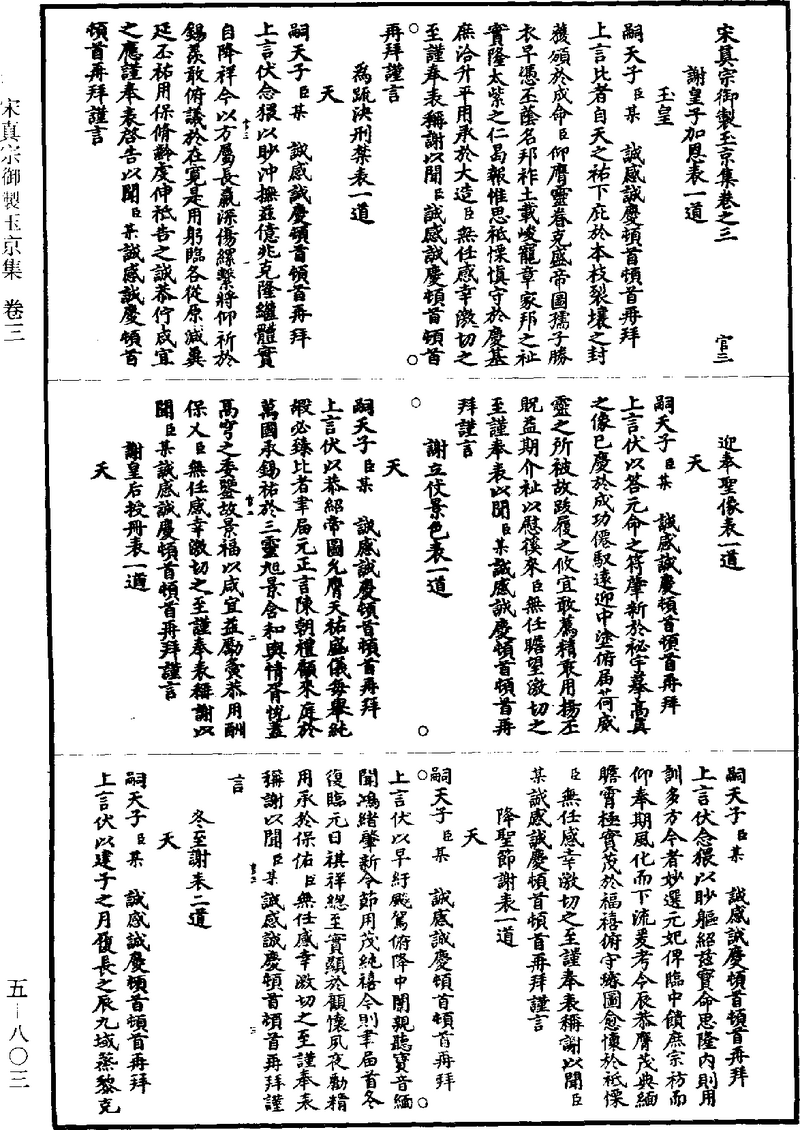 宋真宗御製玉京集卷之三 官三
謝皇子加恩表一道
玉皇
嗣天子臣某 誠感誠慶頓首頓首再拜
上言比者自天之祐下庇於本枝裂壤之封
荐頒於成命臣仰膺靈眷克盛帝圖孺子勝
衣早憑丕蔭名邦祚土載峻寵章家邦之祉
實隆太紫之仁曷報惟思祗慄慎守於慶基
庶洽升平用承於大造臣無任感幸激切之
至謹奉表稱謝以聞臣誠感誠慶頓首頓首
再拜謹言
為疏決刑禁表一道
天
嗣天子臣某 誠感誠慶頓首頓首再拜
上言伏念猥以眇沖撫茲億兆克隆繼體實
自降祥今以方屬長嬴深傷縲繫將仰祈於
錫羨敢俯議於在寬是用躬臨各從原減冀
延丕祐用保脩齡虔伸祗告之誠恭佇咸宜
之應謹奉表啓告以聞臣某誠感誠慶頓首
頓首再拜謹言
迎奉聖像表一道
天
嗣天子臣某 誠感誠慶頓首頓首再拜
上言伏以荅元命之符肇新於祕宇摹高真
之像已慶於成功僊馭遠迎中塗俯届荷威
靈之所被故跂履之攸宜敢薦精衷用揚丕
貺益期介祉以慰徯來臣無任瞻望激切之
至謹奉表以聞臣某誠感誠慶頓首頓首再
拜謹言
謝立仗景色表一道
天
嗣天子臣某 誠感誠慶頓首頓首再拜
上言伏以恭紹帝圖允膺天祐盛儀每舉純
嘏必臻比者聿届元正言陳朝禮顧來庭於
萬國承錫祐於三靈旭景含和輿情胥悅蓋
高穹之委鑒故景福以咸宜益勵夤恭用酬
保乂臣無任感幸激切之至謹奉表稱謝以
聞臣某誠感誠慶頓首頓首再拜謹言
謝皇后授冊表一道
天
嗣天子臣某 誠感誠慶頓首頓首再拜
上言伏念猥以眇軀紹茲寶命思隆内則用
訓多方今者妙選元妃俾臨中饋庶宗祊而
仰奉期風化而下流爰考令辰恭膺茂典緬
瞻霄極實茂於福禧俯守綈圖愈懷於祗慄
臣無任感幸激切之至謹奉表稱謝以聞臣
某誠感誠慶頓首頓首再拜謹言
降聖節謝表一道
天
嗣天子臣某 誠感誠慶頓首頓首再拜
上言伏以早紆飈駕俯降中闈親聽寶音緬
聞鴻緒肇新令節用茂純禧今則聿届首冬
復臨元日祺祥總至實顯於顧懷夙夜勤精
用承於保佑臣無任感幸激切之至謹奉表
稱謝以聞臣某誠感誠慶頓首頓首再拜謹
言
冬至謝表二道
天
嗣天子臣某 誠感誠慶頓首頓首再拜
上言伏以建子之月復長之辰九域蒸黎克
宋真宗御製玉京集 卷三
五－八〇三